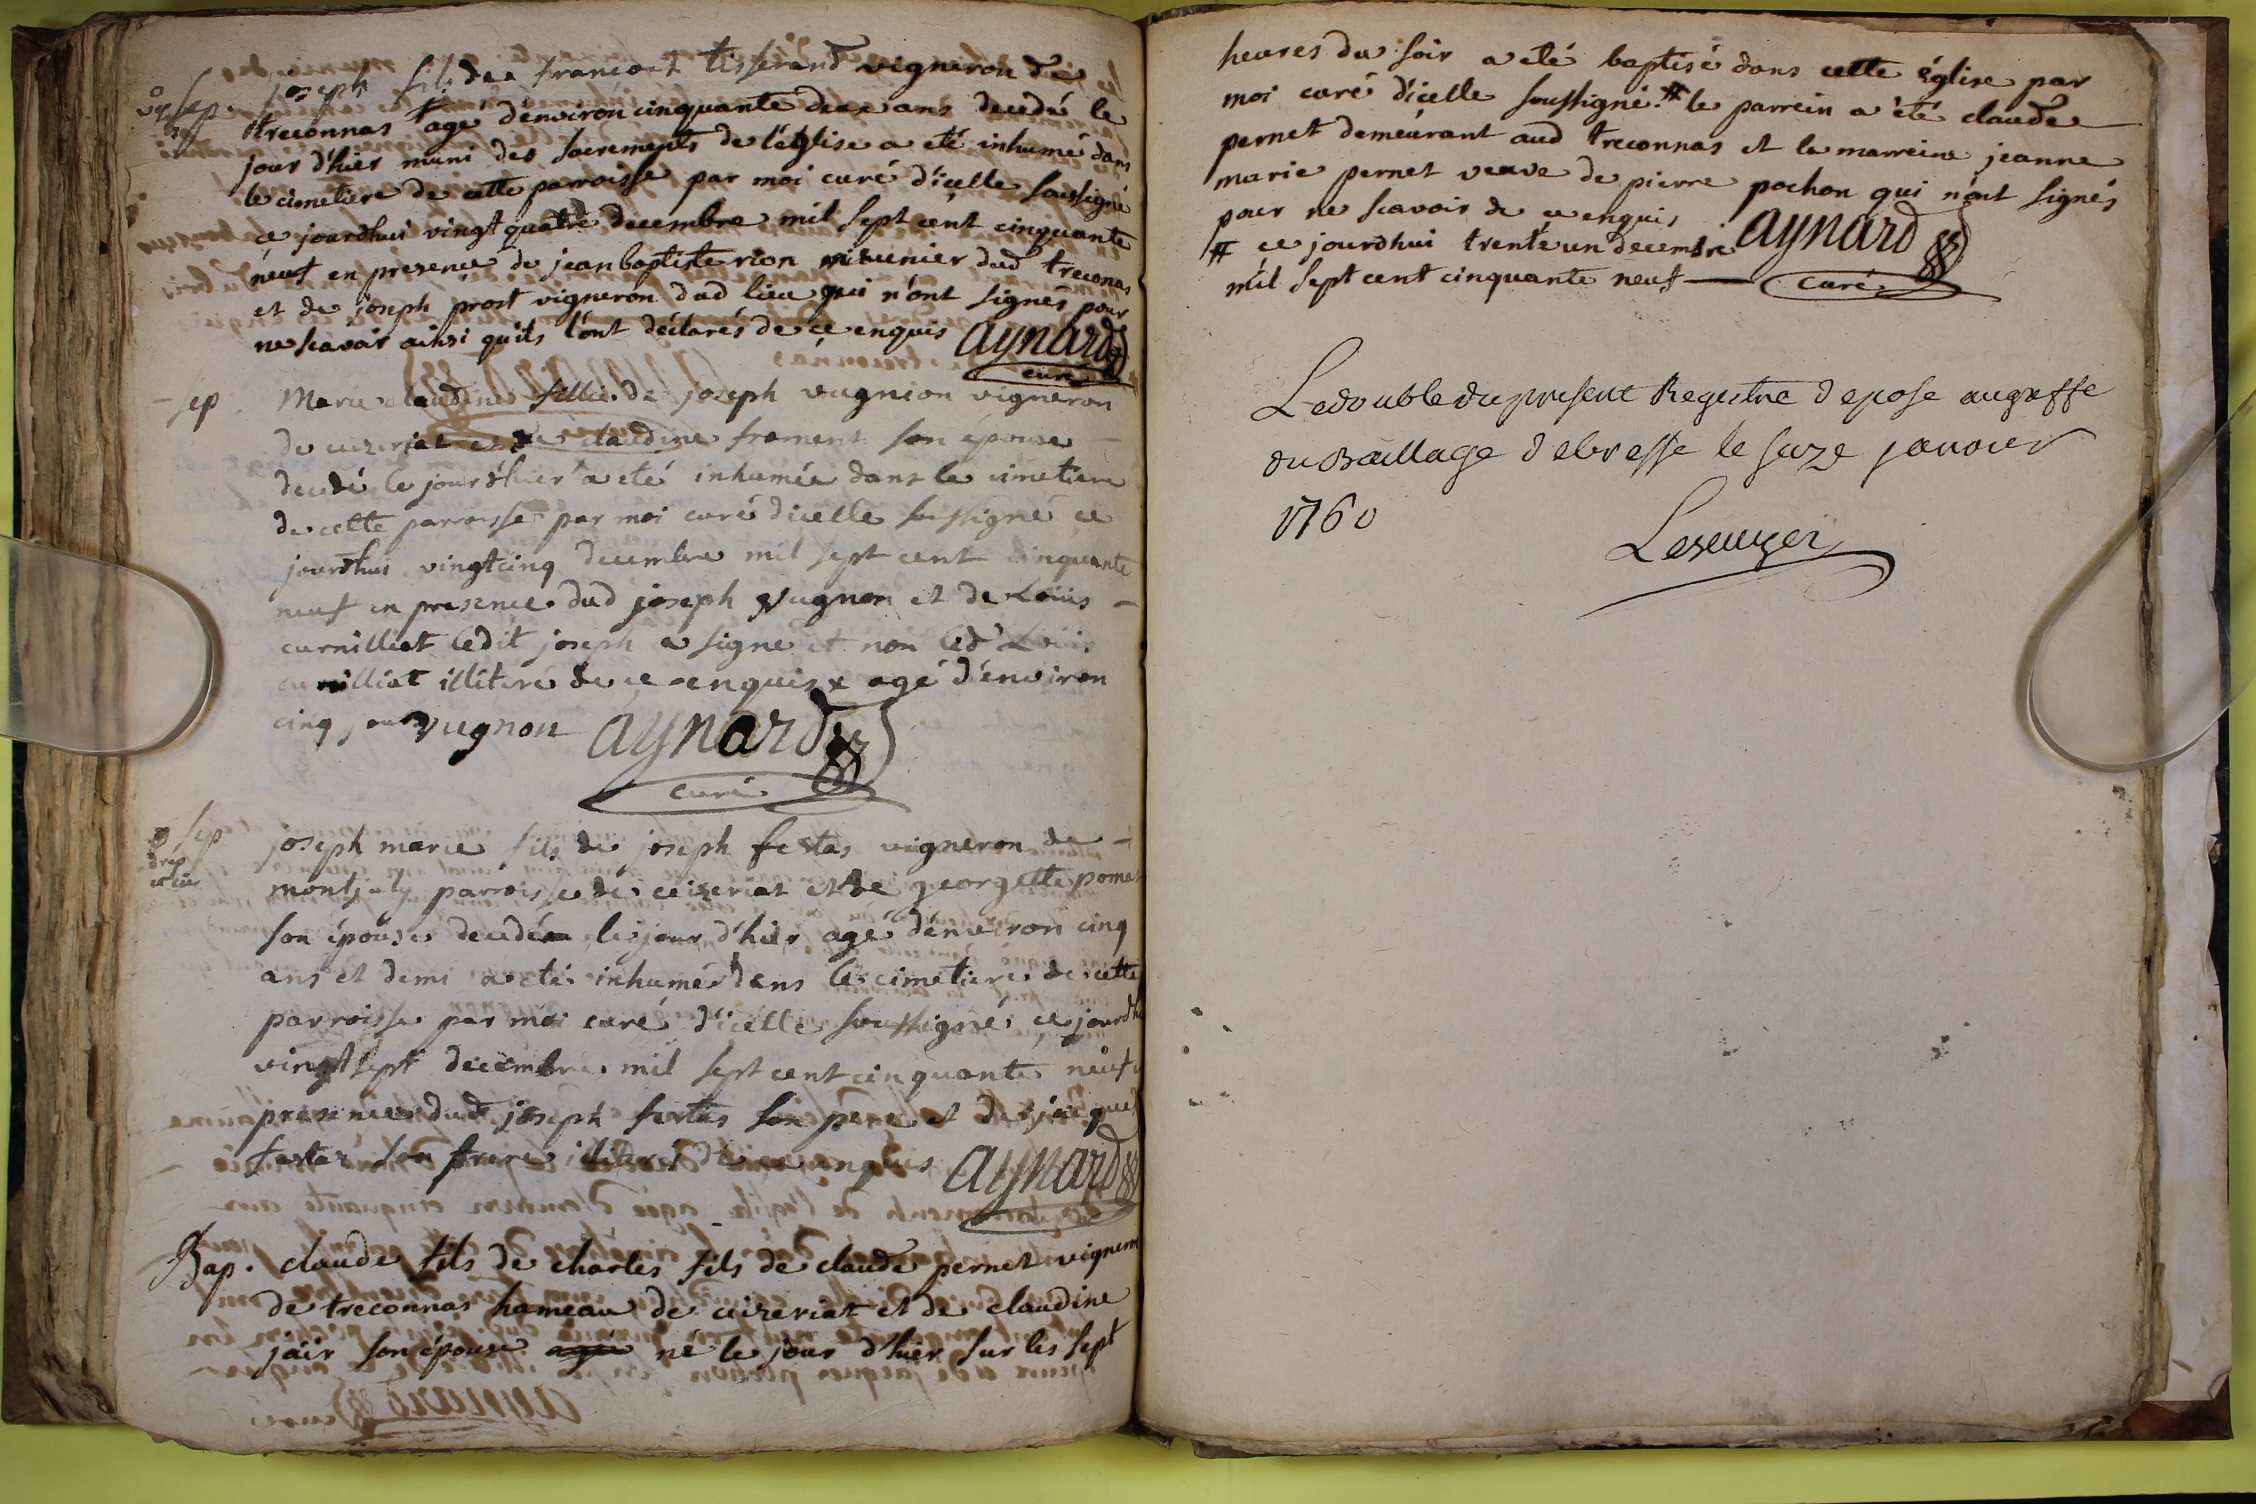 Sep. joseph fils de francois tisserand vigneron de
treconnas agé d'environ cinquante deux ans decedé le
jour d'hier muni des sacrements de l'église a eté inhumé dans
le cimetiere de cette parroisse par moi curé d'icelle soussigné
ce jourdhui vingt quatre decembre mil sept cent cinquante
neuf en presence de jean baptiste rion meunier dud treconas
et de joseph prost vigneron dud lieu qui n'ont signés pour
ne scavoir ainsi quils l'ont déclarés de ce enquis aynard
curé
Sep. Marie claudine fille de joseph vugnion vigneron
de ceizeriat et de claudine froment son épouse
decedé le jour d'hier a eté inhumée dans le cimetiere
de cette parroisse par moi curé dicelle soussigné ce
jourdhui vingtcinq decembre mil sept cent cinquante
neuf en presence dud joseph vugnon et de Louis
curnilliat ledit joseph a signé et non led Louis
curnilliat illiteré de ce enquis x agé d'environ
cinq ans vugnon aynard
curé
Sep joseph marie fils de joseph festas vigneron de
montjuly parroisse de ceizeriat et de georgette pomet
son épouse decedé le jour d'hier agé d'environ cinq
ans et demi a eté inhumé dans le cimetiere de cette
parroisse par moi curé d'icelle soussigné ce jourdh
vingt sept decembre mil sept cent cinquante neuf
presence dud joseph festas son pere et de jacques
festas son frere illiterés de ce enquis aynard
Bap. claude fils de charles fils de claude pernet vigneron
de treconnas hameau de ceizeriat et de claudine
jair son épouse né le jour d'hier sur les sept
heures du soir a eté baptisé dans cette église par
moi curé d'icelle soussigné # le parrein a été claude
pernet demeurant aud treconnas et la marreine jeanne
marie pernet veuve de pierre pochon qui n'ont signés
pour ne scavoir de ce enquis aynard
# ce jourdhui trente un decembre
mil sept cent cinquante neuf curé
Le double du present Registre depose au greffe
du Baillage de bresse le seize janvier
1760